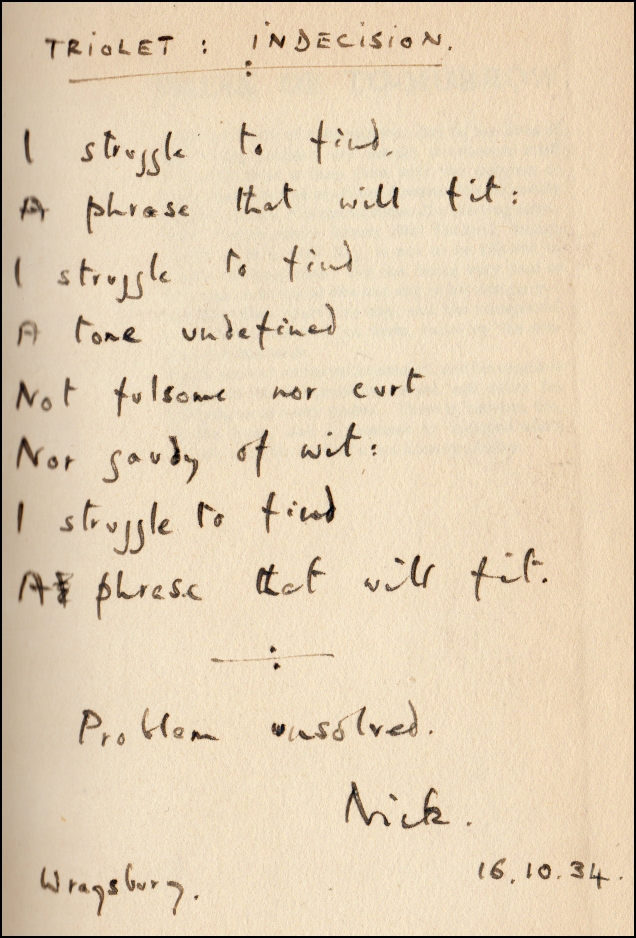 TRIOLET : INDECISION.
I struggle to find.
A phrase that will fit:
I struggle to find
A tone undefined
Not fulsome nor curt
Nor gaudy of wit:
I struggle to find
A phrase that will fit.
Problem unsolved.
Nick.
16.10.34.
Wragsbury.